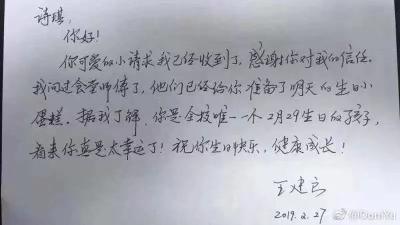 诗琪:
你好!
你可爱的小请求我已经收到了,感谢你对我的信任。
我问过食堂师傅了,他们已经给你准备了明天的生日小
蛋糕。据我了解,你是全校唯一一个2月29生日的孩子,
看来你真是太幸运了!祝你生日快乐,健康成长!
王建良
2019.2.27
@DouYu